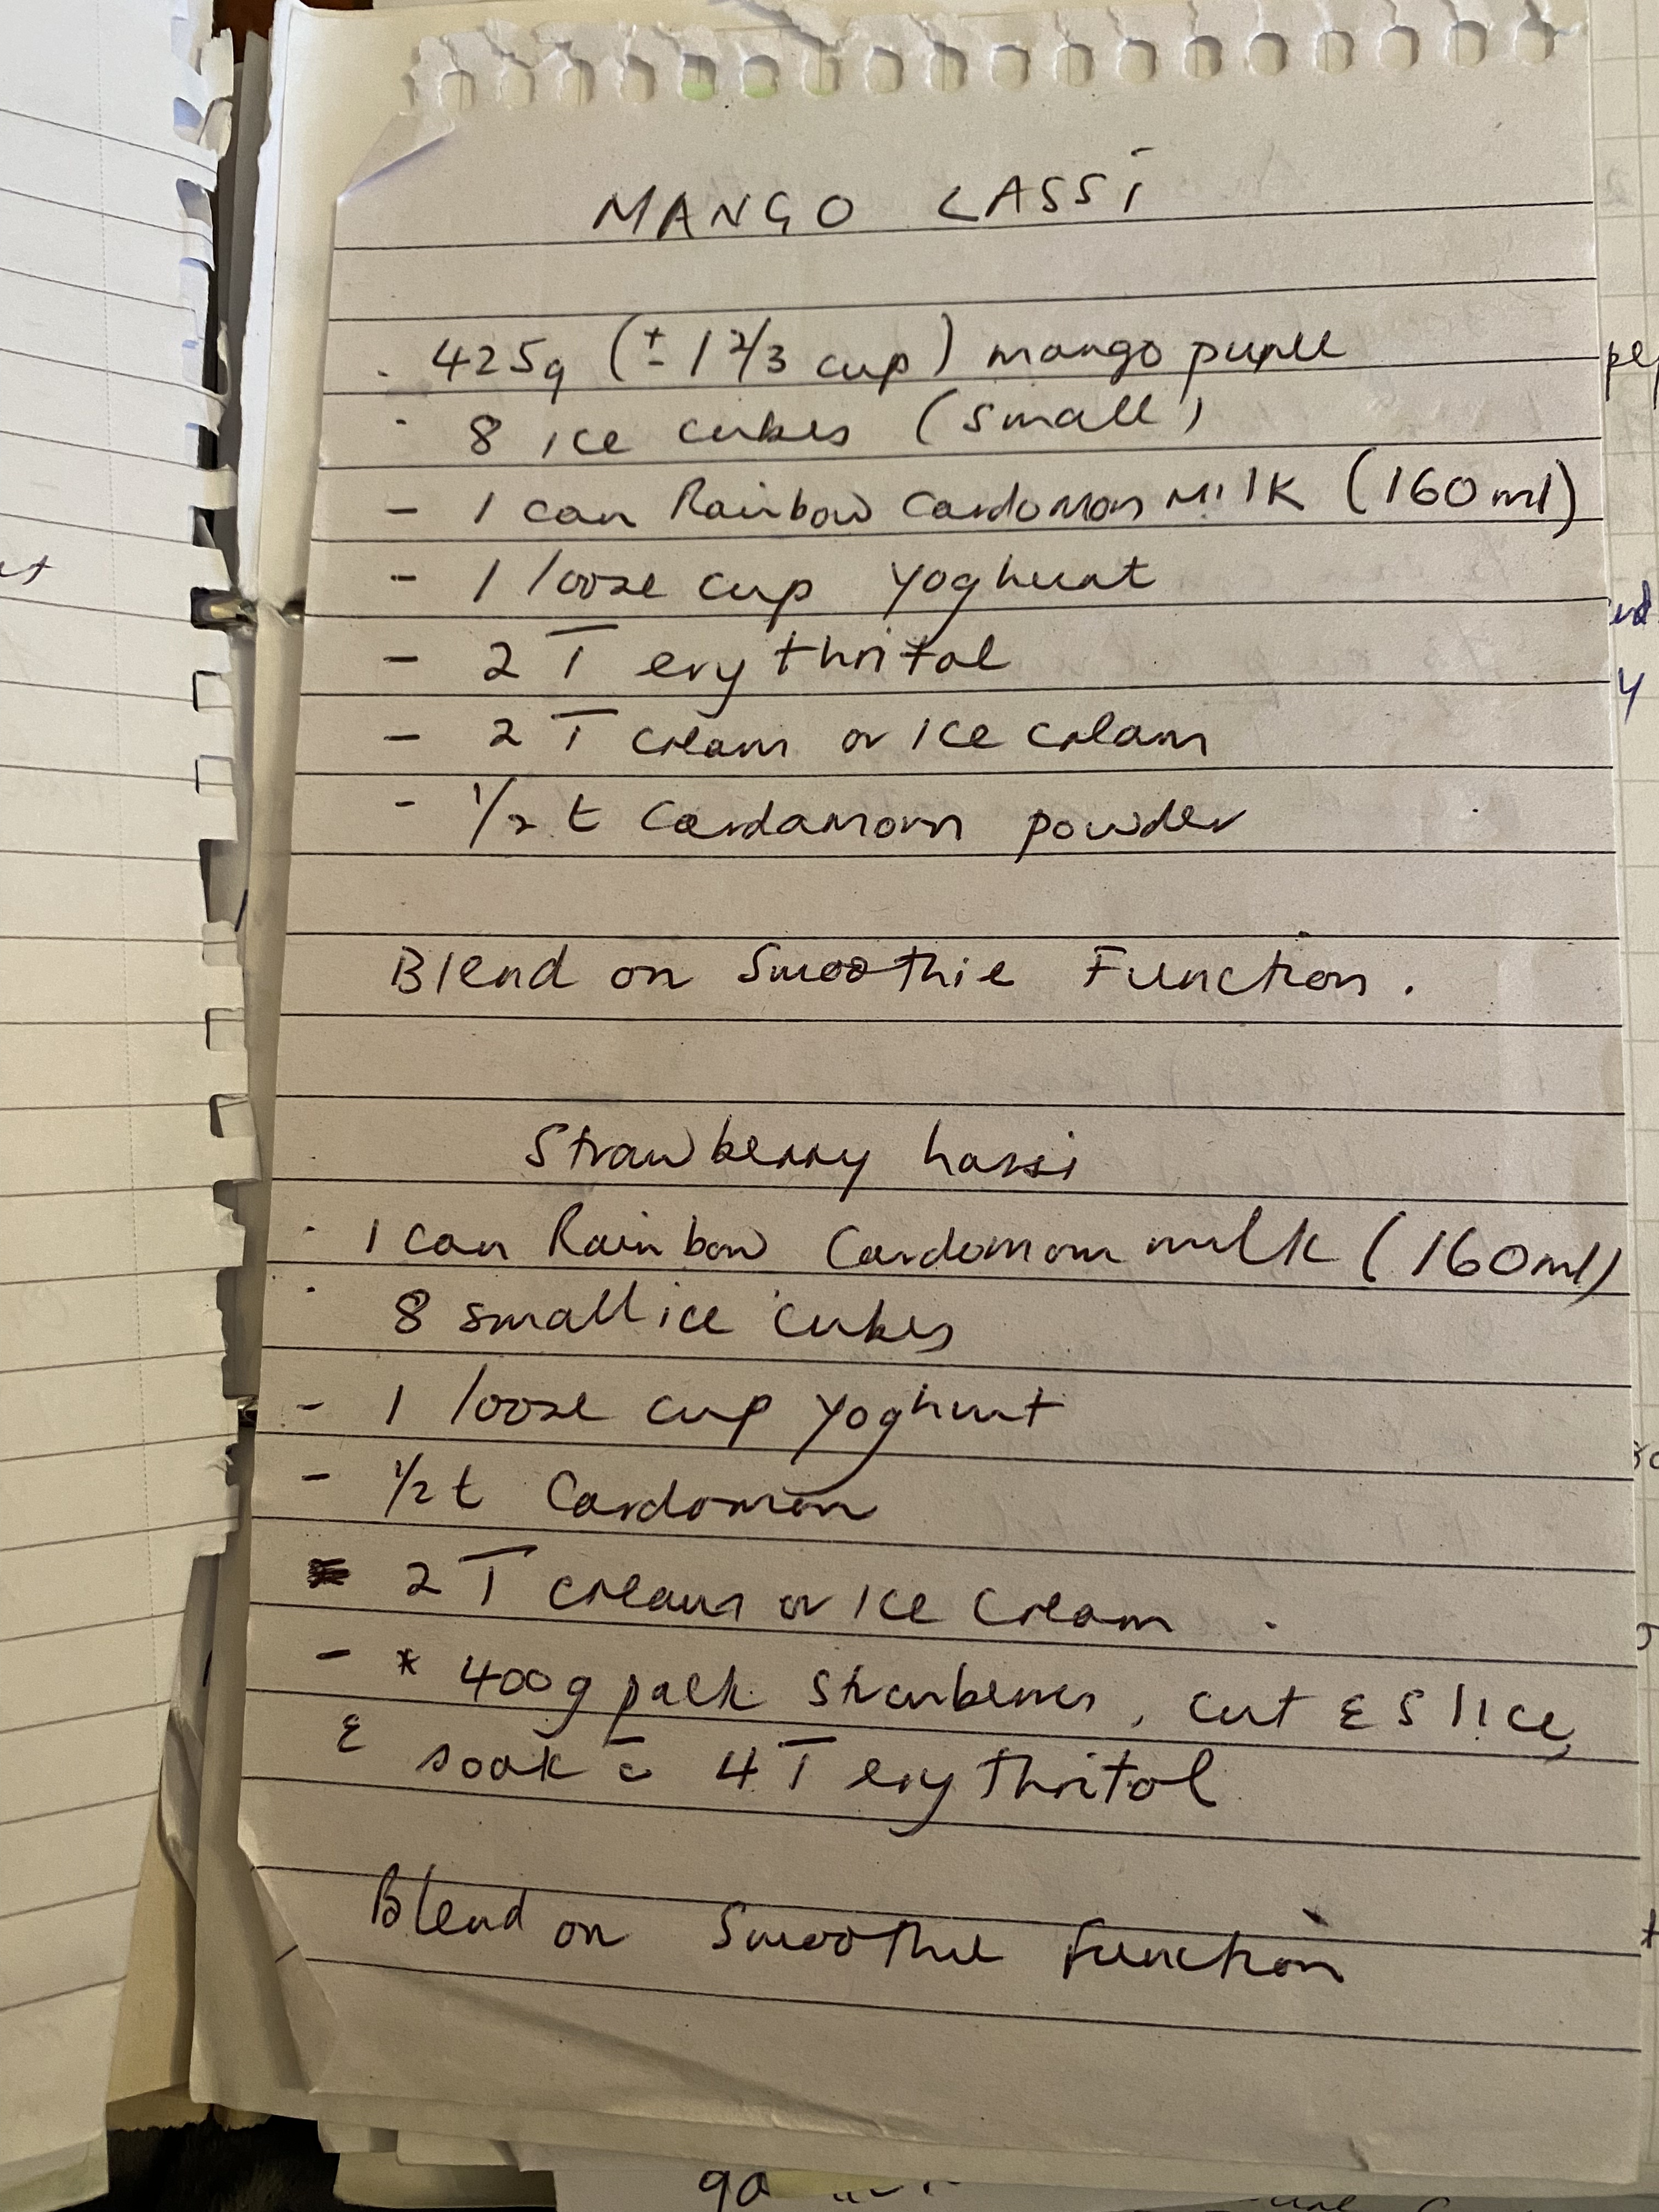 MANGO LASSI
· 425g (± 1 2/3 cup) mango puree
· 8 ice cubes (small)
- 1 can Rainbow Cardomon Milk (160ml)
- 1 loose cup yoghurt
- 2 T erythritol
- 2 T cream or ice cream
- 1/2 t Cardamom powder
Blend on Smoothie Function.
Strawberry Lassi
· 1 can Rainbow Cardomom milk (160ml)
· 8 small ice cubes
- 1 loose cup yoghurt
- 1/2 t Cardomon
2 T cream or ice cream.
- * 400g pack strawberries, cut & slice,
& soak c̄ 4 T erythritol
Blend on Smoothie Function
90